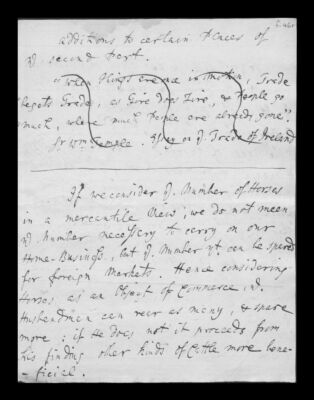 additions to certain Places of
ye second Part.
"when things are once in motion, Trade
begets Trade, as Fire does Fire, & People go
much, where much People are already gone".
Sr Wm Temple. Essay on ye Trade of Ireland
If we consider ye Number of Horses
in a mercantile View; we do not mean
ye Number necessary to carry on our
Home-Business, but ye Number yt can be spared
for foreign Markets. Hence considering
Horses as an Object of Commerce, ye
Husbandman can rear as many, & spare
more; if He does not it proceeds from
his finding other kinds of Cattle more bene=
=ficial.